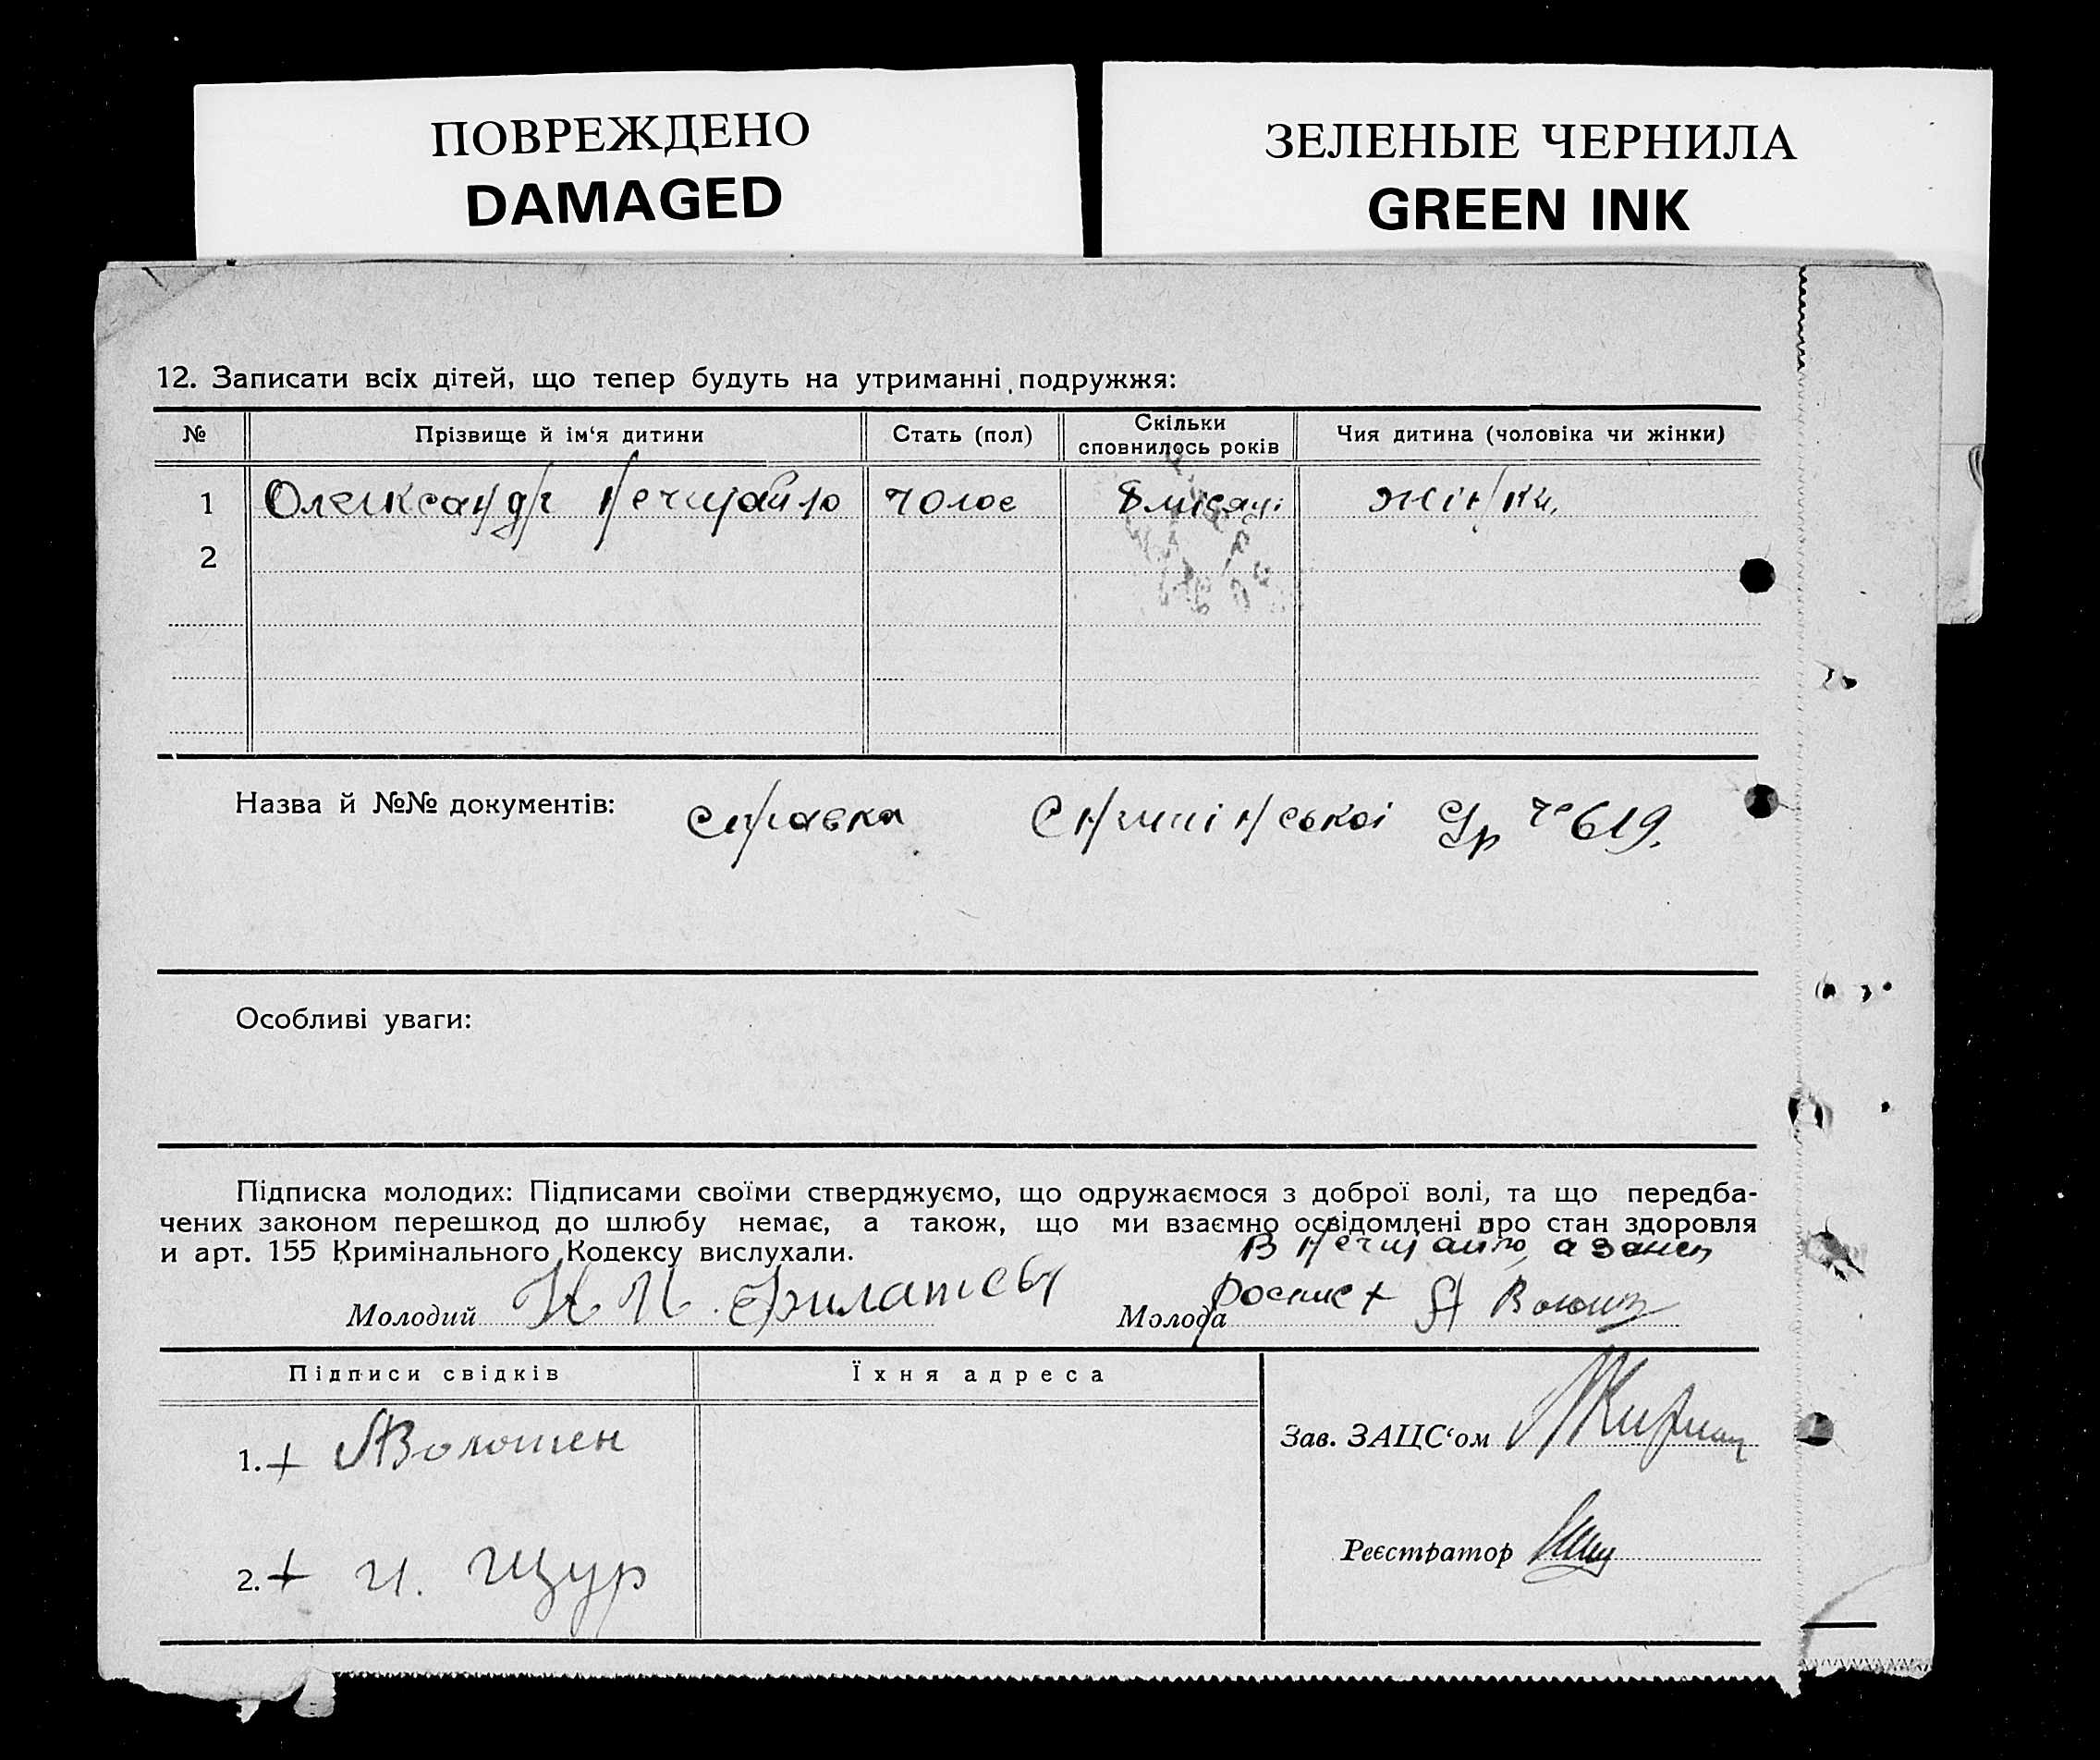 ПОВРЕЖДЕНО
DAMAGED
ЗЕЛЕНЫЕ ЧЕРНИЛА
GREEN INK
12. Записати всіх дітей, що тепер будуть на утриманні подружжя:
№ Прізвище й ім‘я дитини Стать (пол) Скільки сповнилось років Чия дитина (чоловіка чи жінки)
1 Олександр Нечитайло чолов 8 місяці жінки.
2
Назва й №№ документів: справка с/р № 619.
Особливі уваги:
Підписка молодих: Підписами своїми стверджуємо, що одружаємося з доброї волі, та що передба-
чених законом перешкод до шлюбу немає, а також, що ми взаємно освідомлені про стан здоровля
и арт. 155 Кримінального Кодексу вислухали.
В Нечитайло, а за неі
Молодий Молода роспис +
Підписи свідків Їхня адреса
Зав. ЗАЦС‘ом
1. + А Волошен
Реєстратор
2. + И. Щур